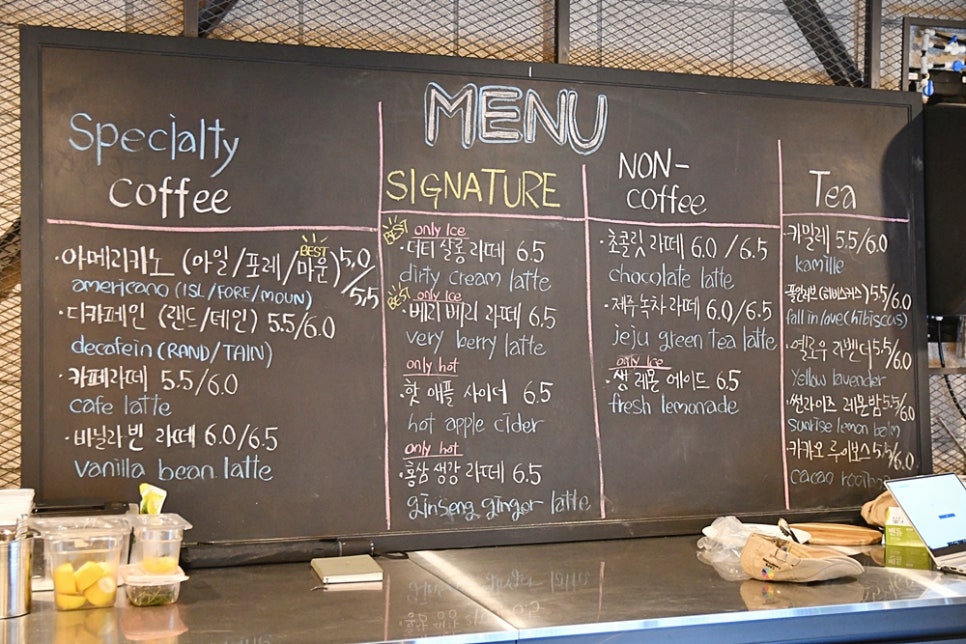 MENU
Specialty
coffee
BEST
·아메리카노 (아일/포레/마운) 5.0/5.5
americano (ISL/FORE/MOUN)
·디카페인 (랜드/테인) 5.5/6.0
decafein (RAND/TAIN)
·카페라떼 5.5/6.0
cafe latte
·바닐라빈 라떼 6.0/6.5
vanilla bean latte
SIGNATURE
BEST
only Ice
·더티 살롱 라떼 6.5
dirty cream latte
BEST
only Ice
·베리베리 라떼 6.5
very berry latte
only hot
·핫 애플 사이더 6.5
hot apple cider
only hot
·홍삼 생강 라떼 6.5
ginseng ginger latte
NON-
coffee
·초콜릿 라떼 6.0/6.5
chocolate latte
·제주녹차 라떼 6.0/6.5
jeju green tea latte
only Ice
·생 레몬 에이드 6.5
fresh lemonade
Tea
·카밀레 5.5/6.0
kamille
5.5/6.0
fall in love (hibiscus)
·옐로우 라벤더 5.5/6.0
Yellow lavender
·썬라이즈 레몬밤 5.5/6.0
sunrise lemon balm
·카카오 루이보스 5.5/6.0
cacao